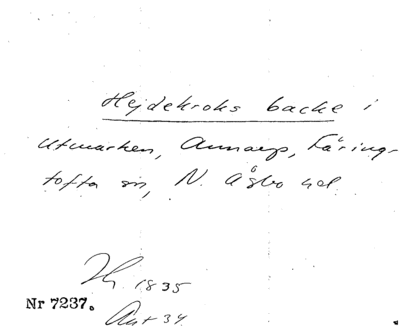 Hejdekroks backe i
Utmarken, Annarp, Färing-
tofta sn, N. Åsbo hd
1835
Nr 7237.
Akt 34